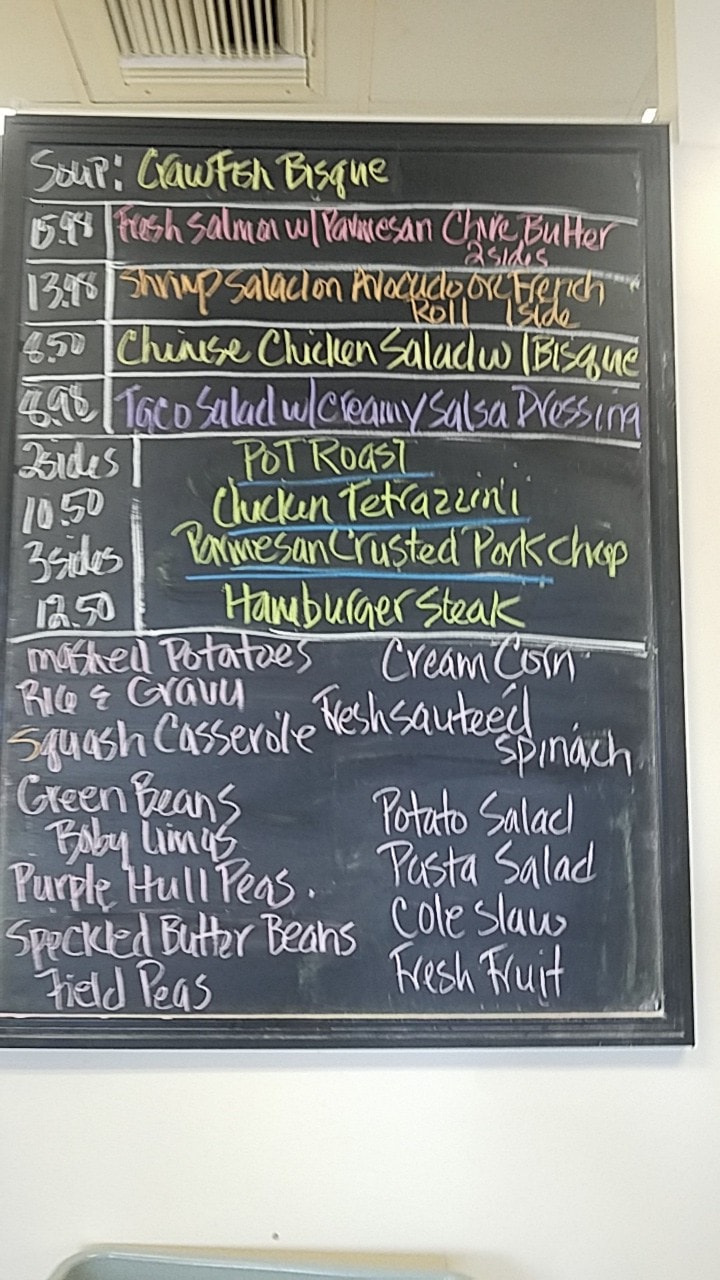 Soup: Crawfish Bisque
15.98 Fresh Salmon w/ Parmesan Chive Butter
2 sides
13.98 Shrimp Salad on Avocado or French
Roll 1 side
8.50 Chinese Chicken Salad w/ Bisque
8.98 Taco Salad w/ Creamy Salsa Dressing
2 sides Pot Roast
10.50 Chicken Tetrazzini
3 sides Parmesan Crusted Pork Chop
12.50 Hamburger Steak
Mashed Potatoes Cream Corn
Rice & Gravy Fresh sauteed
Squash Casserole spinach
Green Beans Potato Salad
Baby Limas Pasta Salad
Purple Hull Peas. Cole Slaw
Speckled Butter Beans Fresh Fruit
Field Peas